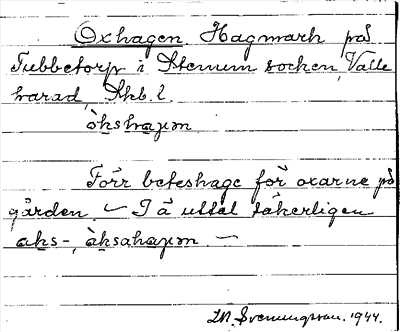 Oxhagen Hagmark på
Tubbetorp i Stenum socken, Valle
härad, Skb. l.
òkshaɡən
Förr beteshage för oxarne på
gården. — I ä uttal säkerligen
aks-, àksahaɡən. —
Svenungsson. 1944.